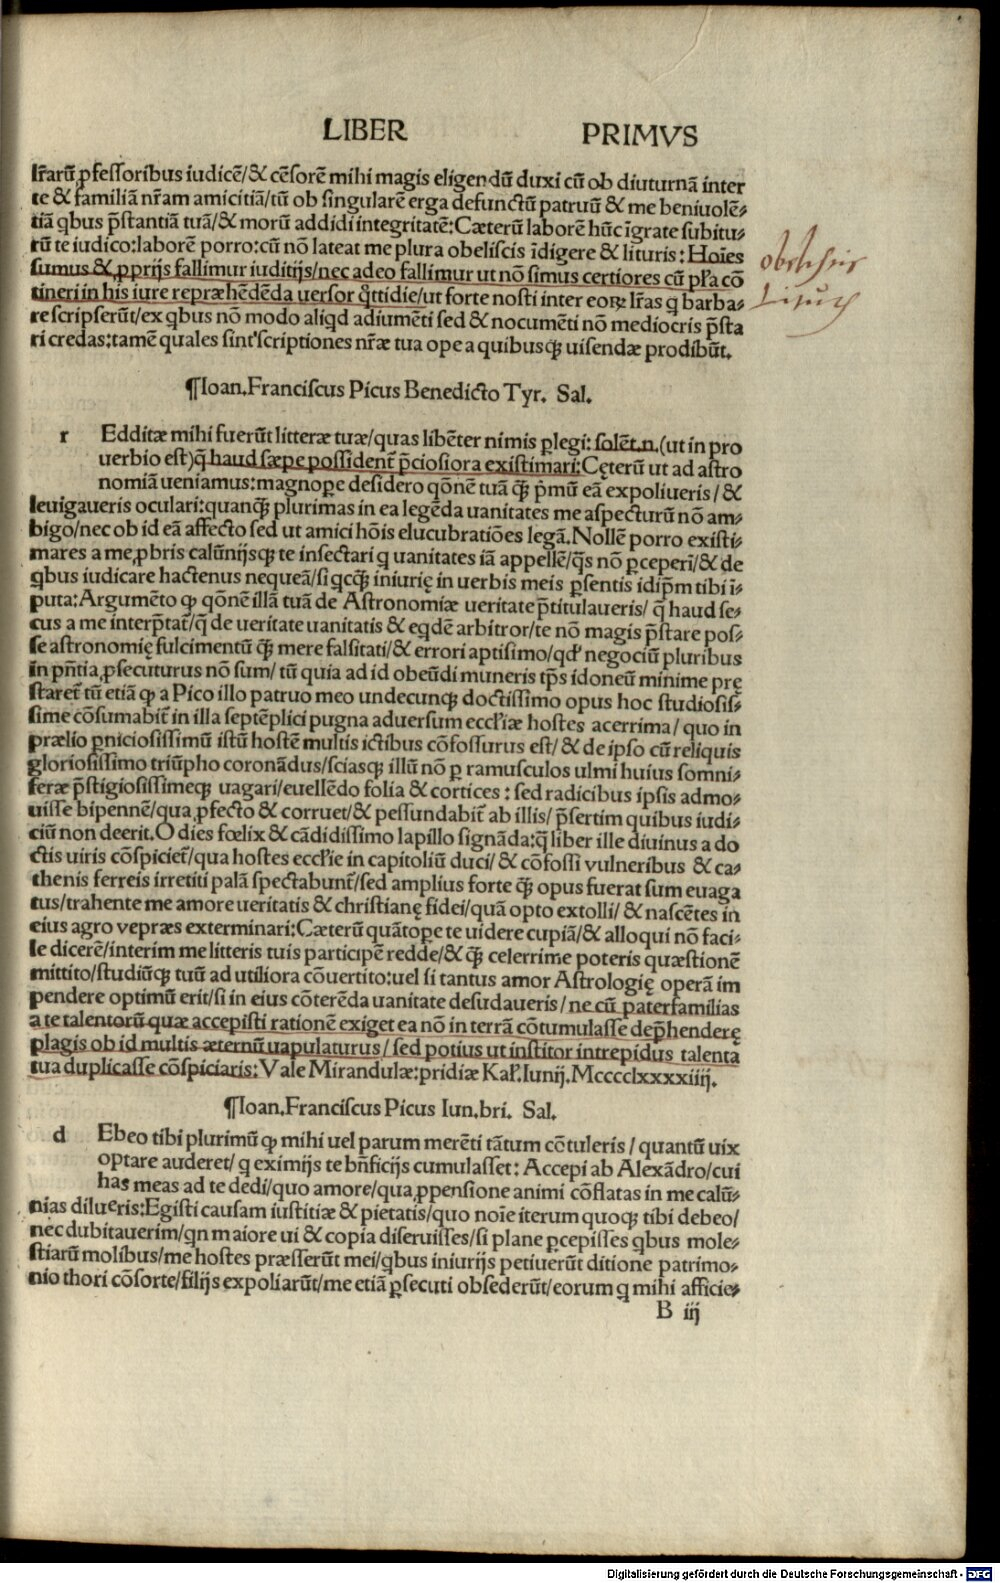 LIBER PRIMVS
lr̃arũ ꝓfessoribus iudicẽ/& cẽsorẽ mihi magis eligendũ duxi cũ ob diuturnã inter
te & familiã nr̃am amicitiã/tũ ob singularẽ erga defunctũ patruũ & me beniuolẽ⸗
tiã qbus p̃stantiã tuã/& morũ addidi integritatẽ: Cæterũ laborẽ hũc ĩgrate subitu⸗
rũ te iudico: laborẽ porro: cũ nõ lateat me plura obeliscis ĩdigere & lituris: Hoĩes
obeliscis
sumus & ꝓprijs fallimur iuditijs/nec adeo fallimur ut nõ simus certiores cũ pl̃a cõ
tineri in his iure repræhẽdẽda uersor q̃ttidie/ut forte nosti inter eoꝝ lr̃as q barba⸗
re scripserũt/ex qbus nõ modo aliqd adiumẽti sed & nocumẽti nõ mediocris p̃sta
ri credas: tamẽ quales sint scriptiones nr̃æ tua ope a quibusqȝ uisendæ prodibũt.
¶Ioan. Franciscus Picus Benedicto Tyr. Sal.
r Edditæ mihi fuerũt litteræ tuæ/quas libẽter nimis ꝑlegi: solẽt.n.(ut in pro
uerbio est)q̃ haud sæpe possident̃ p̃ciosiora existimari: Cęterũ ut ad astro
nomiã ueniamus: magnoꝑe desidero qõnẽ tuã qȝ̃ p̃mũ eã expoliueris/&
leuigaueris oculari: quanqȝ̃ plurimas in ea legẽda uanitates me aspecturũ nõ am⸗
bigo/nec ob id eã affecto sed ut amici hõis elucubratiões legã. Nollẽ porro existi⸗
mares a me ꝓbris calũnijsqȝ te insectari q uanitates iã appellẽ/q̃s nõ ꝑceperĩ/& de
qbus iudicare hactenus nequeã/si qcqȝ̃ iniurię in uerbis meis p̱sentis idip̃m tibi ĩ⸗
puta: Argumẽto ꝙ qõnẽ illã tuã de Astronomiæ ueritate p̃titulaueris/ q̃ haud se⸗
cus a me interp̃tat̃/q̃ de ueritate uanitatis & eqdẽ arbitror/te nõ magis p̃stare pos⸗
se astronomię fulcimentũ qȝ̃ mere falsitati/& errori aptisimo/qđ negociũ pluribus
in pñtia ꝓsecuturus nõ sum/ tũ quia ad id obeũdi muneris tp̃s idoneũ minime prę
staret̃ tũ etiã ꝙ a Pico illo patruo meo undecunqȝ doctissimo opus hoc studiosis⸗
sime cõsumabit̃ in illa septẽplici pugna aduersum eccl̃iæ hostes acerrima/ quo in
prælio ꝑniciosissimũ istũ hostẽ multis ictibus cõfossurus est/ & de ipso cũ reliquis
gloriosissimo triũpho coronãdus/sciasqȝ illũ nõ ꝑ ramusculos ulmi huius somni⸗
feræ p̃stigiosissimeqȝ uagari/euellẽdo folia & cortices : sed radicibus ipsis admo⸗
uisse bipennẽ/qua ꝓfecto & corruet/& pessundabit̃ ab illis/ p̃sertim quibus iudi⸗
ciũ non deerit. O dies fœlix & cãdidissimo lapillo signãda: q̃ liber ille diuinus a do
ctis uiris cõspiciet̃/qua hostes eccl̃ie in capitoliũ duci/ & cõfossi vulneribus & ca⸗
thenis ferreis irretiti palã spectabunt̃/sed amplius forte qȝ̃ opus fuerat sum euaga
tus/trahente me amore ueritatis & christianę fidei/quã opto extolli/ & nascẽtes in
eius agro vepræs exterminari: Cæterũ quãtoꝑe te uidere cupiã/& alloqui nõ faci⸗
le dicerẽ/interim me litteris tuis participẽ redde/& qȝ̃ celerrime poteris quæstionẽ
mittito/studiũqȝ tuũ ad utiliora cõuertito: uel si tantus amor Astrologię operã im
pendere optimũ erit/si in eius cõterẽda uanitate desudaueris/ ne cũ paterfamilias
a te talentorũ quæ accepisti rationẽ exiget ea nõ in terrã cõtumulasse dep̃henderę
plagis ob id multis æternũ uapulaturus/ sed potius ut institor intrepidus talenta
tua duplicasse cõspiciaris: Vale Mirandulæ: pridiæ Kal̃. Iunij. Mcccclxxxxiiij.
¶Ioan. Franciscus Picus Iun. bri. Sal.
d Ebeo tibi plurimũ ꝙ mihi uel parum merẽti tãtum cõtuleris / quantũ uix
optare auderet/ q eximijs te bñficijs cumulasset: Accepi ab Alexãdro/cui
has meas ad te dedi/quo amore/qua ꝓpensione animi cõflatas in me calũ⸗
nias dilueris: Egisti causam iustitiæ & pietatis/quo noĩe iterum quoqȝ tibi debeo/
nec dubitauerim/qn maiore ui & copia diseruisses/si plane ꝑcepisses qbus mole⸗
stiarũ molibus/me hostes præsserũt mei/qbus iniurijs petiuerũt ditione patrimo⸗
nio thori cõsorte/filijs expoliarũt/me etiã ꝑsecuti obsederũt/eorum q mihi afficie⸗
B iij
Digitalisierung gefördert durch die Deutsche Forschungsgemeinschaft - DFG